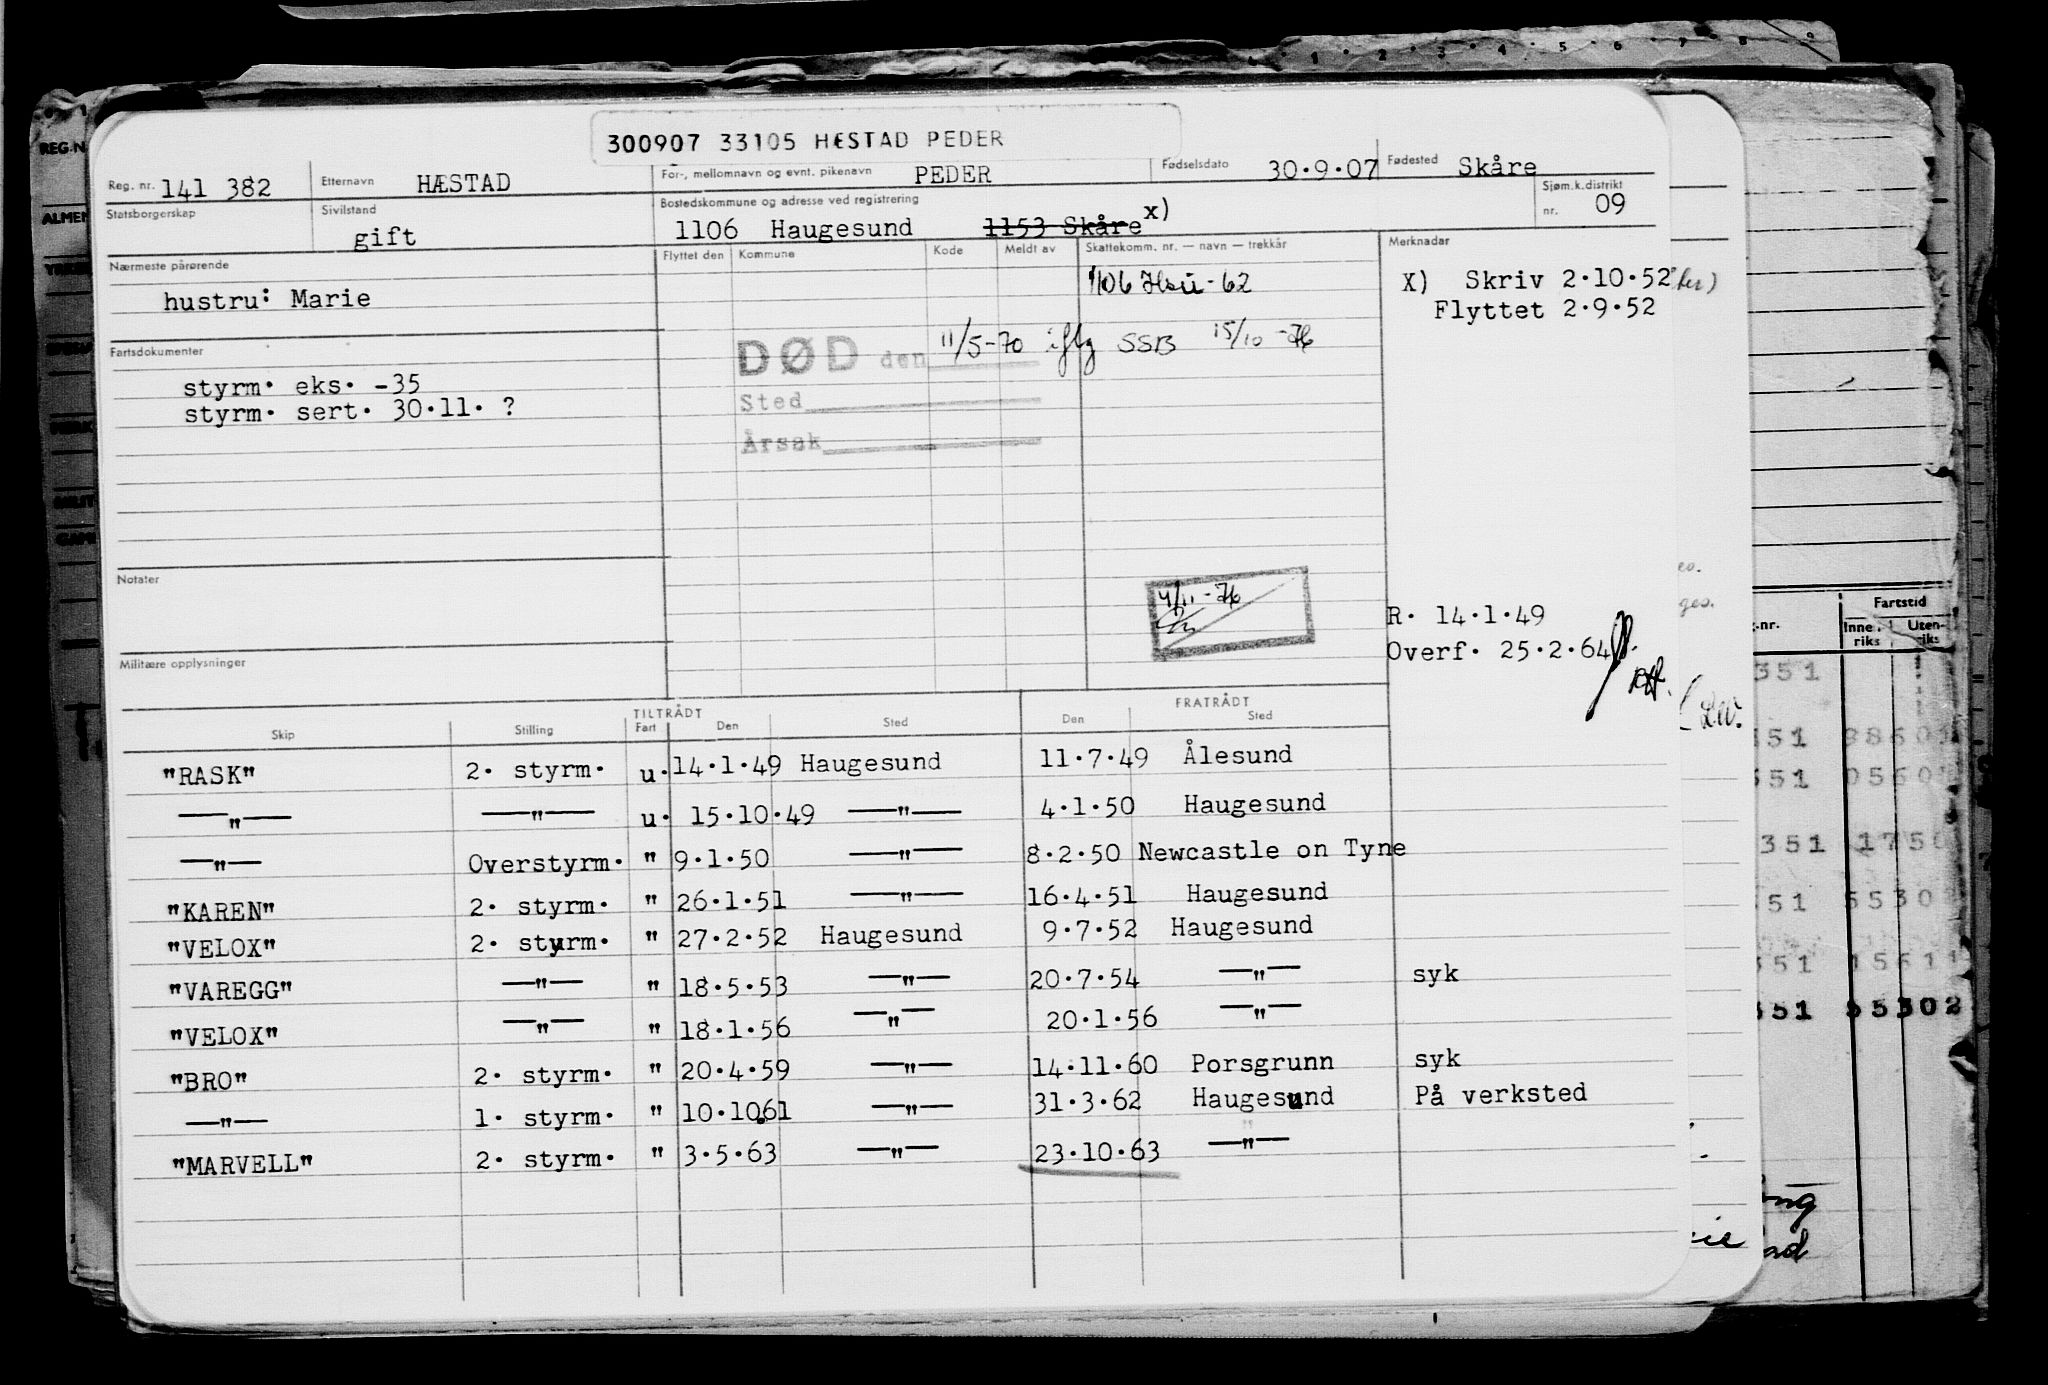 300907 33105 HÆSTAD PEDER
Reg. nr. 141 382 Etternavn HÆSTAD For-, mellomnavn og evnt. pikenavn PEDER Fødselsdato 30.9.07 Fødested Skåre
Statsborgerskap Sivilstand gift Bostedskommune og adresse ved registrering 1106 Haugesund 1153 Skåre x) Sjøm.k.distrikt nr. 09
Nærmeste pårørende Flyttet den Kommune Kode Meldt av Skattekomm. nr. — navn — trekkår Merknadar
hustru: Marie 1106 Hsu - 62 X) Skriv 2.10.52
Flyttet 2.9.52
Fartsdokumenter DØD den 11/5-70 iflg SSB 15/10 -76
styrm. eks. -35 Sted
styrm. sert. 30.11. ? Årsak
Notater 4/11-76
R. 14.1.49
Militære opplysninger Overf. 25.2.64
TILTRÅDT FRATRÅDT
Skip Stilling Fart Den Sted Den Sted
"RASK" 2. styrm. u. 14.1.49 Haugesund 11.7.49 Ålesund
—"— —"— u. 15.10.49 —"— 4.1.50 Haugesund
—"— Overstyrm. " 9.1.50 —"— 8.2.50 Newcastle on Tyne
"KAREN" 2. styrm. " 26.1.51 —"— 16.4.51 Haugesund
"VELOX" 2. styrm. " 27.2.52 Haugesund 9.7.52 Haugesund
"VAREGG" —"— " 18.5.53 —"— 20.7.54 —"— syk
"VELOX" —"— " 18.1.56 —"— 20.1.56 —"—
"BRO" 2. styrm. " 20.4.59 —"— 14.11.60 Porsgrunn syk
—"— 1. styrm. " 10.10.61 —"— 31.3.62 Haugesund På verksted
"MARVELL" 2. styrm. " 3.5.63 —"— 23.10.63 —"—
Fartstid
Innenriks Utenriks
351
51
51
351 1750
51 55302
51
351 55302